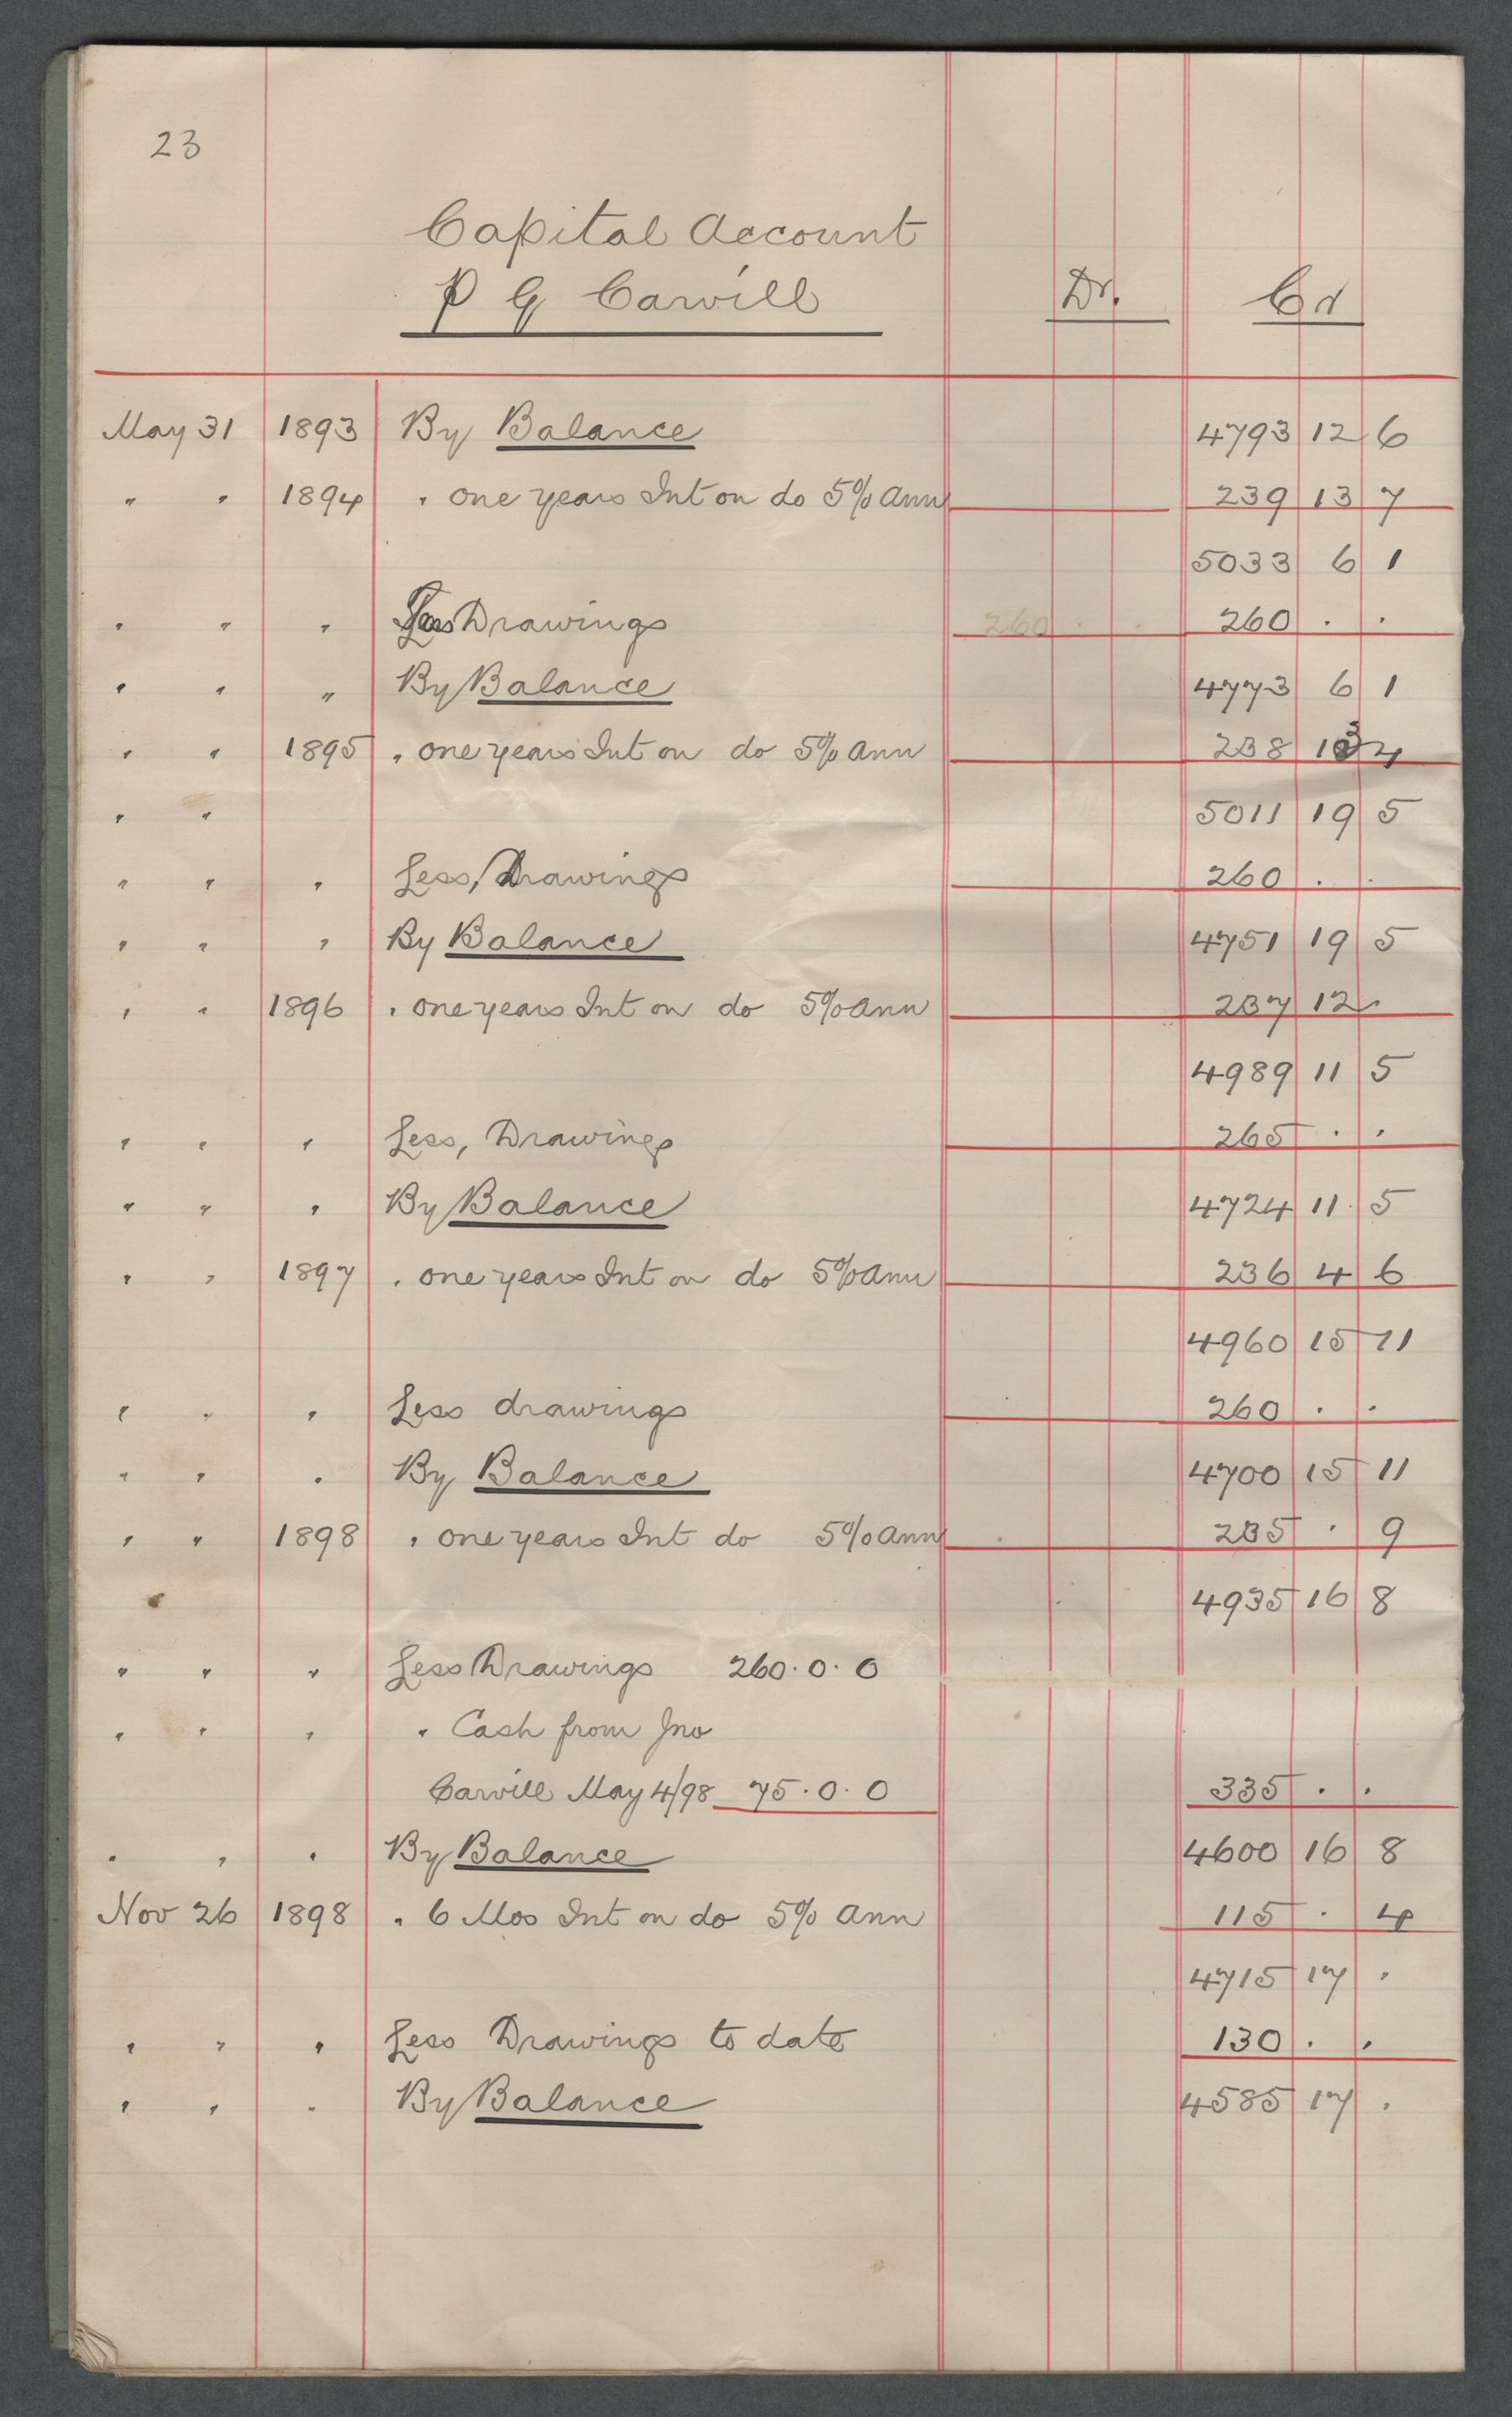 23
Capital Account
P G Carvill Dr. Cr
May 31 1893 By Balance 4793 12 6
" " 1894 " one years Int on do 5% Ann 239 13 7
5033 6 1
" " " Less Drawings 260 260 . .
" " " By Balance 4773 6 1
" " 1895 " one years Int on do 5% Ann 238 13 4
" " 5011 19 5
" " " Less, Drawings 260 . .
" " " By Balance 4751 19 5
" " 1896 " one years Int on do 5% Ann 237 12 .
4989 11 5
" " " Less, Drawings 265 . .
" " " By Balance 4724 11 5
" " 1897 " one years Int on do 5% Ann 236 4 6
4960 15 11
" " " Less drawings 260 . .
" " " By Balance 4700 15 11
" " 1898 " one years Int do 5% Ann 235 . 9
4935 16 8
" " " Less Drawings 260.0.0
" " " " Cash from Jno
Carvill May 4/98 75.0.0 335 . .
" " " By Balance 4600 16 8
Nov 26 1898 " 6 Mos Int on do 5% Ann 115 . 4
4715 17 .
" " " Less Drawings to date 130 . .
" " " By Balance 4585 17 .